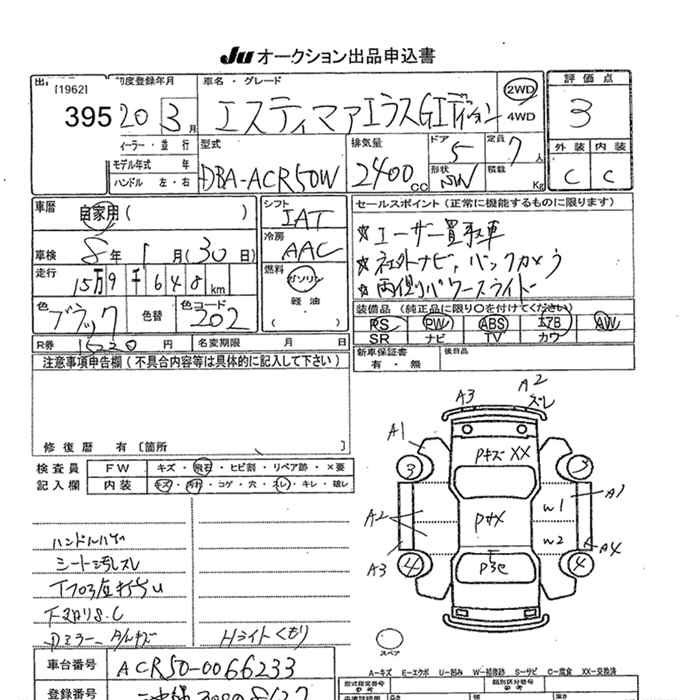 Ju オークション出品申込書
[1962]
395
初度登録年月
20 3 月
車名・グレード
エスティマアエラスGエディション
2WD
4WD
評価点
3
外装 内装
C C
ィーラー・並行
モデル年式 年
ハンドル 左・右
型式
DBA-ACR50W
排気量
2400 cc
ドア
5
定員
7 人
形状
SW
積載
Kg
車歴
自家用 ( )
車検
8 年 1 月 (30 日)
走行
15万9千648 km
色
ブラック
色替
色コード
202
シフト
IAT
冷房
AAC
燃料
ガソリン
軽油
( )
セールスポイント (正常に機能するものに限ります)
☆ユーザー買取車
☆社外ナビ、バックカメラ
☆両側パワースライド
装備品 (純正品に限り○を付けてください)
PS PW ABS エアB AW
SR ナビ TV カワ
R券 16220 円
名変期限 月 日
新車保証書
有・無
後日品
注意事項申告欄 (不具合内容等は具体的に記入して下さい)
修復歴 有 [箇所 ]
検査員
記入欄
FW キズ・飛石・ヒビ割・リペア跡・×要
内装 キズ・汚れ・コゲ・穴・スレ・キレ・破レ
シート汚レスレ
Hライトくもり
A3
A2
ズレ
A1
PキズXX
3
3
A2
Pキメ
W1
A1
W2
A4
A3
4
4
スペア
A-キズ E-エクボ U-凹み W-補修跡 S-サビ C-腐食 XX-交換済
車台番号 ACR50-0066233
登録番号
型式指定番号
類別区分番号